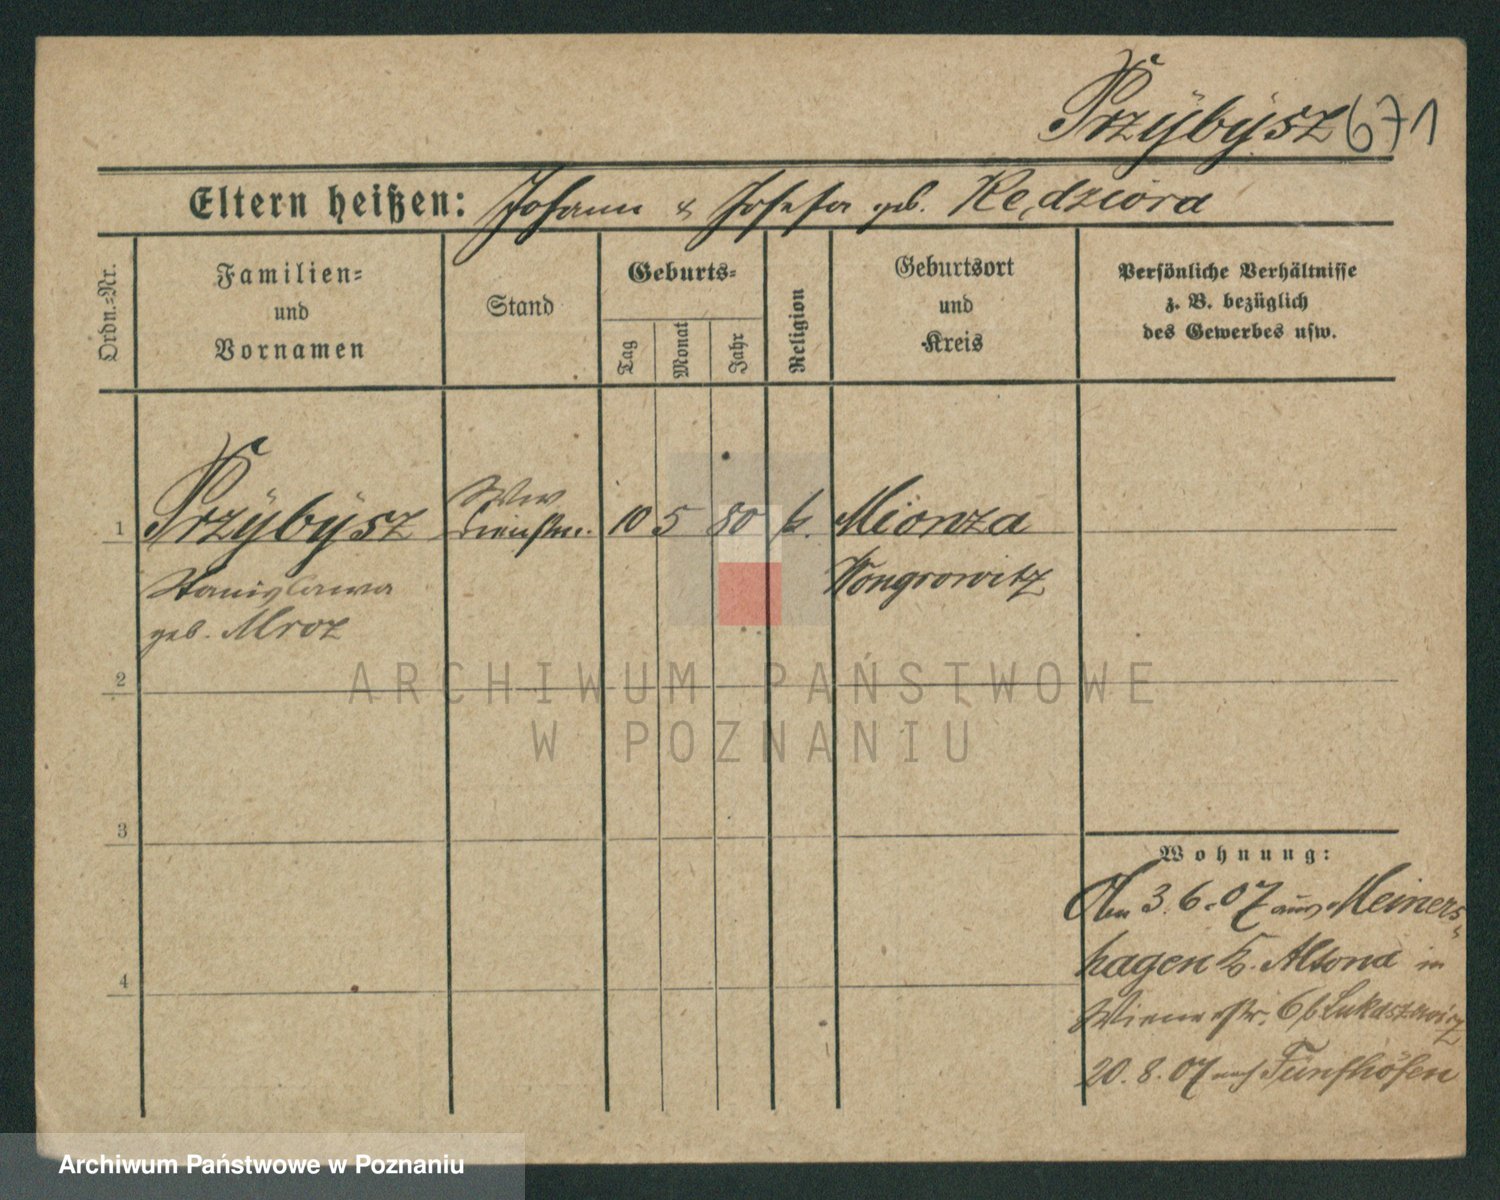 Przÿbÿsz 671
Eltern heißen: Johann & Josefa geb. Kędziora
Ordn.-Nr.
Familien-
und
Vornamen
Stand
Geburts-
Tag
Monat
Jahr
Religion
Geburtsort
und
Kreis
Persönliche Verhältnisse
z. B. bezüglich
des Gewerbes usw.
1 Przÿbÿsz
Stanislawa
geb. Mroz
Ww
10 5 80 k. Mionza
Wongrowitz
2
3
4
Wohnung:
Am 3.6.07 aus Meiners-
hagen Kr. Altona in
Wienerstr. 6 b Lukaszewicz
20.8.07 auf Fünfhöfen
ARCHIWUM PAŃSTWOWE
W POZNANIU
Archiwum Państwowe w Poznaniu